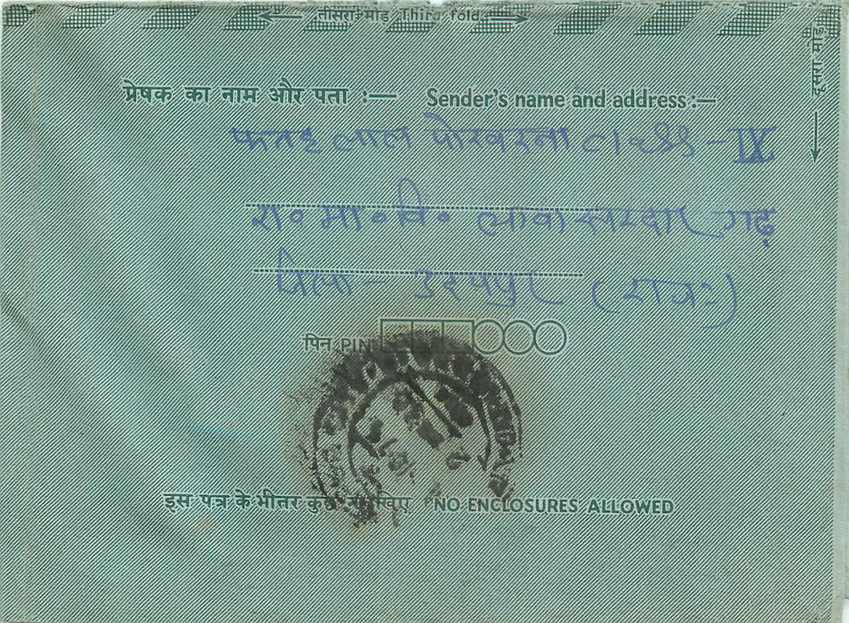 तीसरा मोड़ Third fold
दूसरा मोड़
प्रेषक का नाम और पता :— Sender's name and address :—
फतह लाल पोखरना C/ass - IX
रा० मा० वि० लावा सरदारगढ़
जिला - उदयपुर (राजः)
पिन PIN
इस पत्र के भीतर कुछ न रखिए NO ENCLOSURES ALLOWED